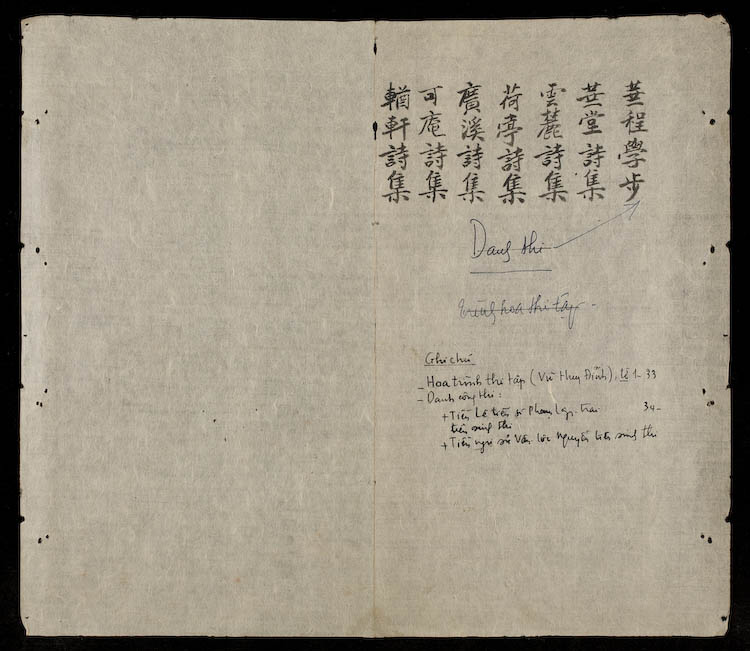 華程學步
華堂詩集
雲麓詩集
荷亭詩集
廣溪詩集
可庵詩集
輶軒詩集
Danh thi
hoa thi tập -
Ghi chú
- Hoa trình thi tập (Vũ Huy Đĩnh), tờ 1-33
- Danh công thi :
+ Tiền Lê tiến sĩ Phạm Lập Trai 34-
tiên sinh thi
+ Tiền ngự sử Vân Lộc Nguyễn tiên sinh thi